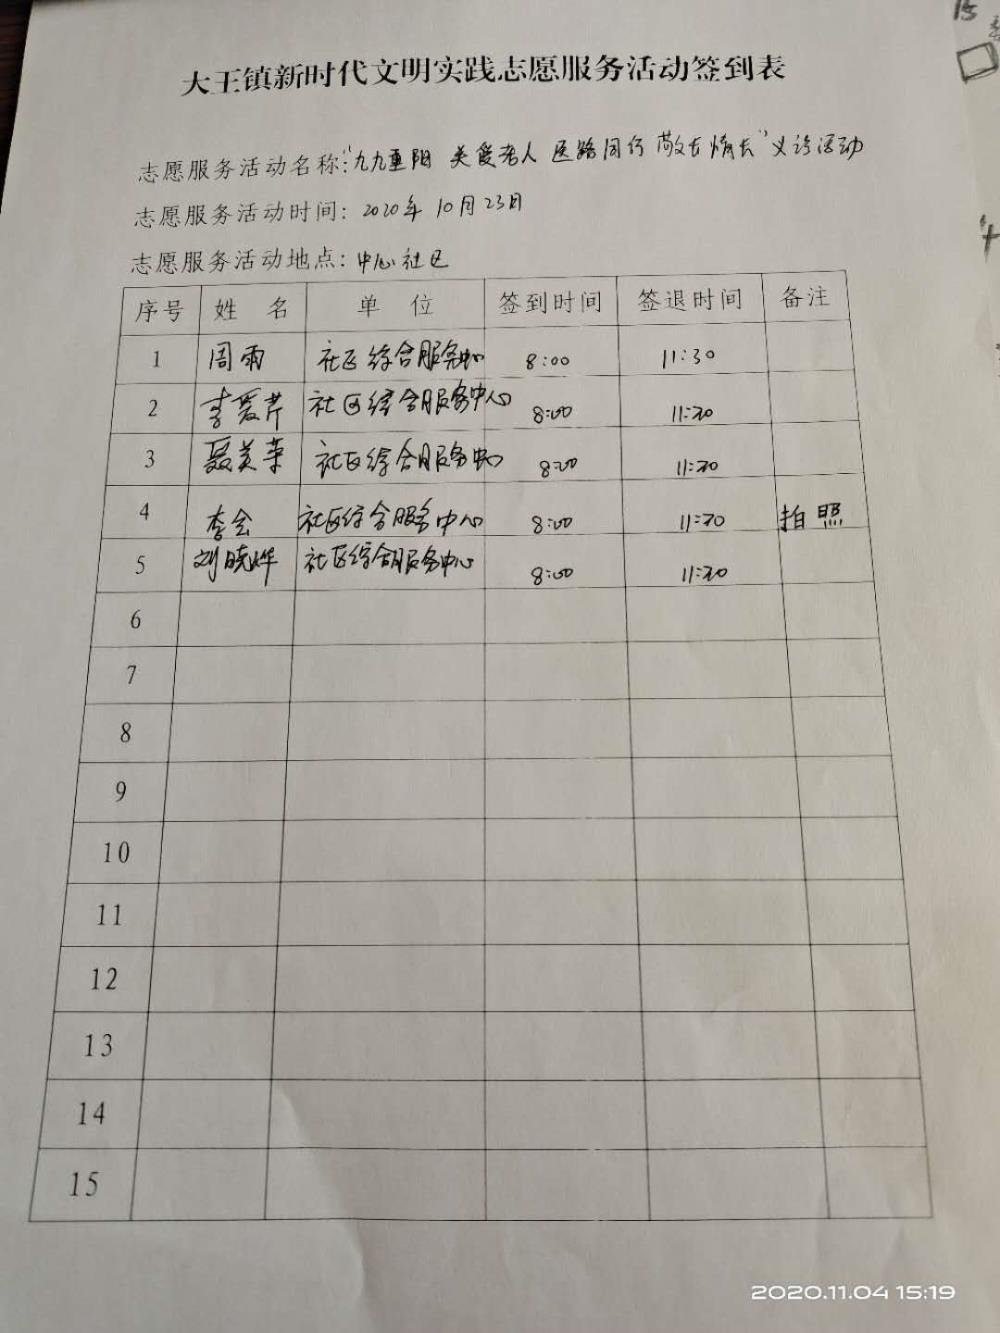 大王镇新时代文明实践志愿服务活动签到表
志愿服务活动名称:“九九重阳 关爱老人 医路同行 敬长情长”义诊活动
志愿服务活动时间: 2020年10月23日
志愿服务活动地点: 中心社区
序号 姓 名 单 位 签到时间 签退时间 备注
1 周雨 社区综合服务中心 8:00 11:30
2 李爱芹 社区综合服务中心 8:00 11:30
3 聂美荣 社区综合服务中心 8:00 11:30
4 李会 社区综合服务中心 8:00 11:30 拍照
5 刘晓烨 社区综合服务中心 8:00 11:30
6
7
8
9
10
11
12
13
14
15
2020.11.04 15:19